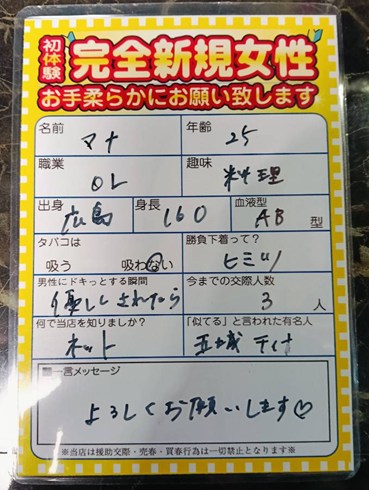 初体験
完全新規女性
お手柔らかにお願い致します
名前 マナ 年齢 25
職業 OL 趣味 料理
出身 広島 身長 160 血液型 AB 型
タバコは 吸う 吸わない 勝負下着って? ヒミツ
男性にドキっとする瞬間 優しくされたら 今までの交際人数 3 人
何で当店を知りましたか? ネット 「似てる」と言われた有名人 玉城 ティナ
■一言メッセージ
よろしくお願いします♡
※当店は援助交際・売春・買春行為は一切禁止となります※